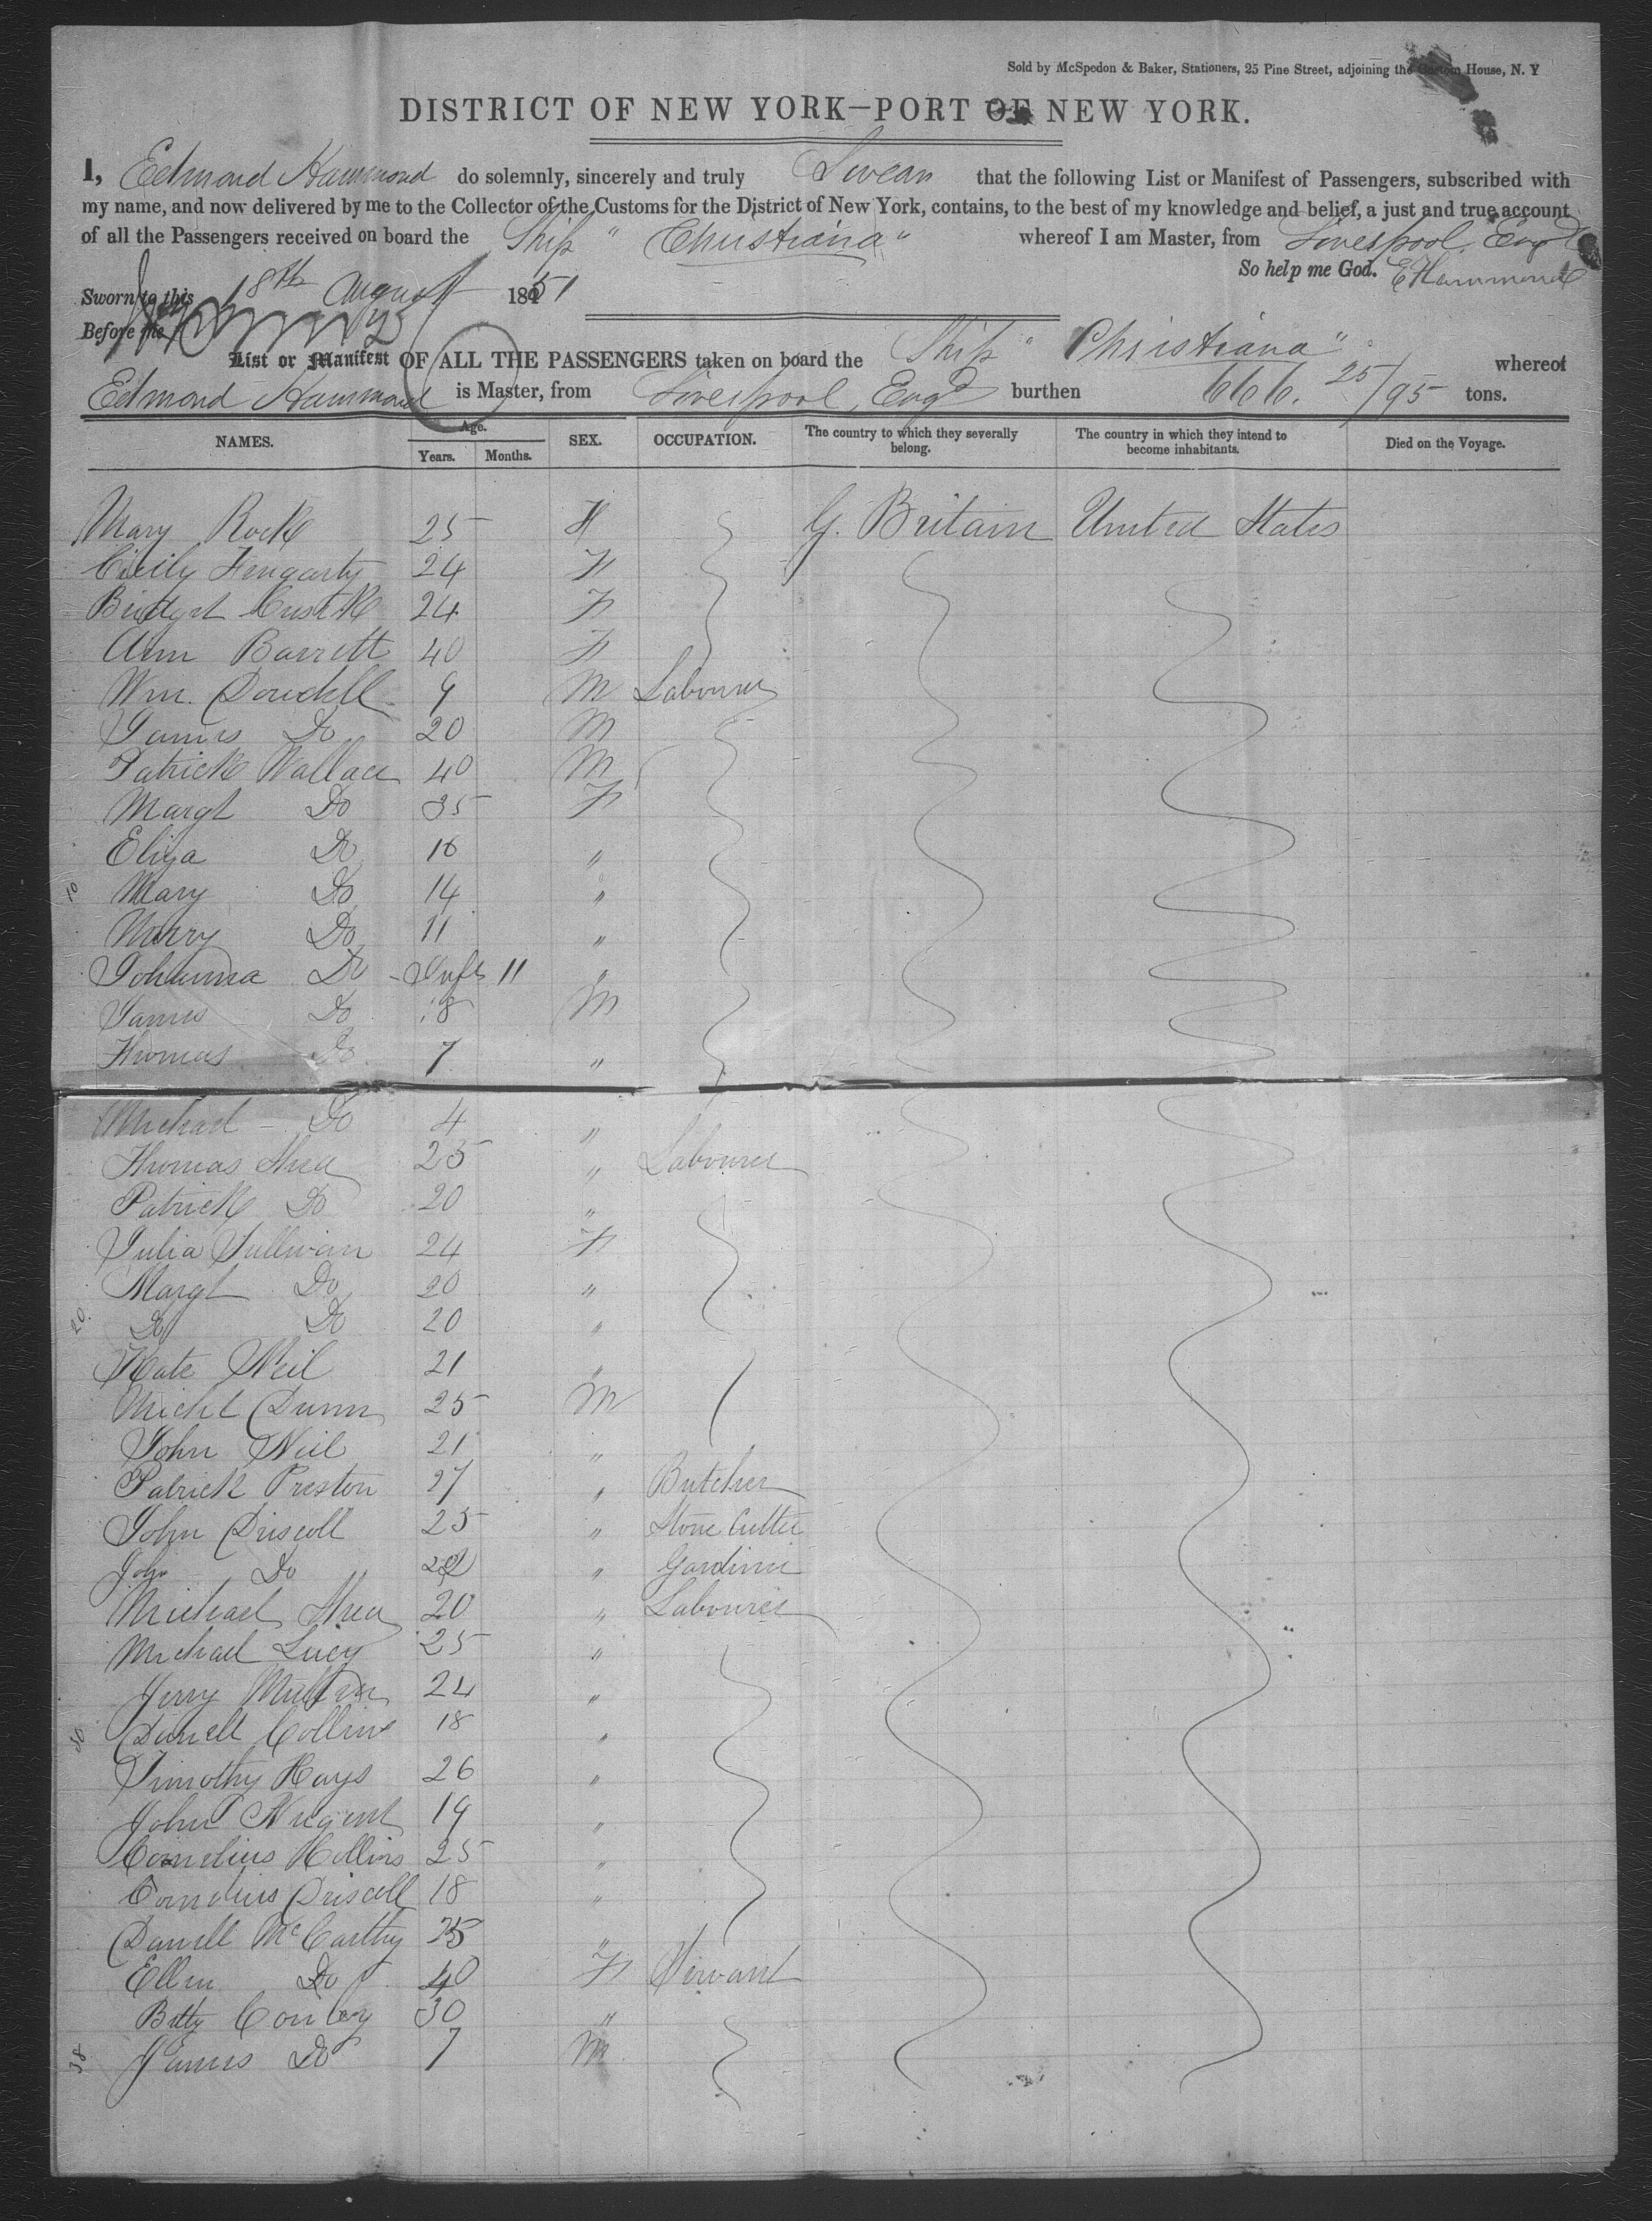 Sold by McSpedon & Baker, Stationers, 25 Pine Street, adjoining the Custom House, N. Y
DISTRICT OF NEW YORK—PORT OF NEW YORK.
I, Edmond Hammond do solemnly, sincerely and truly Swear that the following List or Manifest of Passengers, subscribed with
my name, and now delivered by me to the Collector of the Customs for the District of New York, contains, to the best of my knowledge and belief, a just and true account
of all the Passengers received on board the Ship "Christiana" whereof I am Master, from Liverpool, Engd
So help me God. E Hammond
Sworn to this 18th August 1851
Before me
List or Manifest OF ALL THE PASSENGERS taken on board the Ship "Christiana" whereof
Edmond Hammond is Master, from Liverpool, Engd burthen 666. 25/95 tons.
NAMES. Age. Years. Months. SEX. OCCUPATION. The country to which they severally belong. The country in which they intend to become inhabitants. Died on the Voyage.
Mary Rock 25 F G. Britain United States
Cicily 24 F
Bridget 24 F
Ann Barrett 40 F
Wm. Dowdell 9 M Labourer
James Do 20 M
Patrick Wallace 40 M
Margt Do 35 F
Eliza Do 16 "
10 Mary Do 14 "
Do 11 "
Johanna Do Inft 11 "
James Do 18 M
Thomas Do 7 "
Michael Do 4 "
Thomas Shea 25 " Labourer
Patrick Do 20 "
Julia Sullivan 24 F
Margt Do 20 "
20. Do Do 20 "
Kate Neil 21 "
Michl Dunn 25 M
John Neil 21 "
Patrick Preston 27 " Butcher
John Driscoll 25 " Stone Cutter
John Do " Gardiner
Michael Shea 20 " Labourer
Michael Lucy 25 "
Jerry 24 "
30 Daniell Collins 18 "
Timothy Hays 26 "
John Nugent 19 "
Cornelius Collins 25 "
Cornelius Driscoll 18 "
Daniell McCarthy 35 "
Ellen Do 40 F Servant
Betty Conley 30 "
38 James Do 7 M